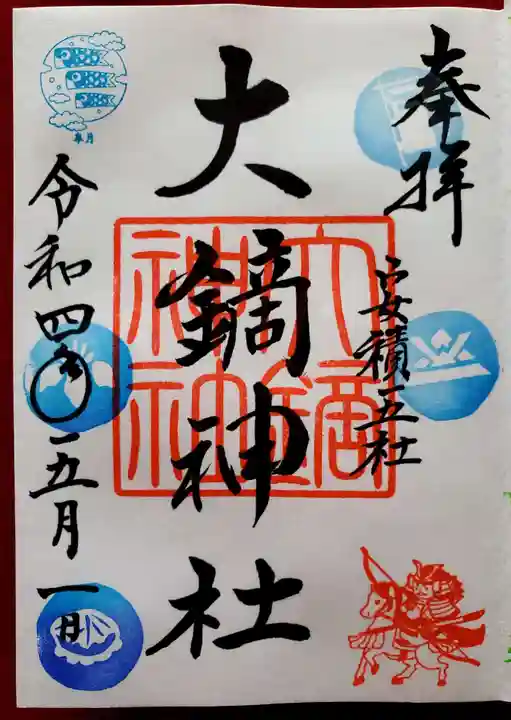 奉拝
安積五社
大鏑神社
大鏑神社
令和四年五月一日
皐月